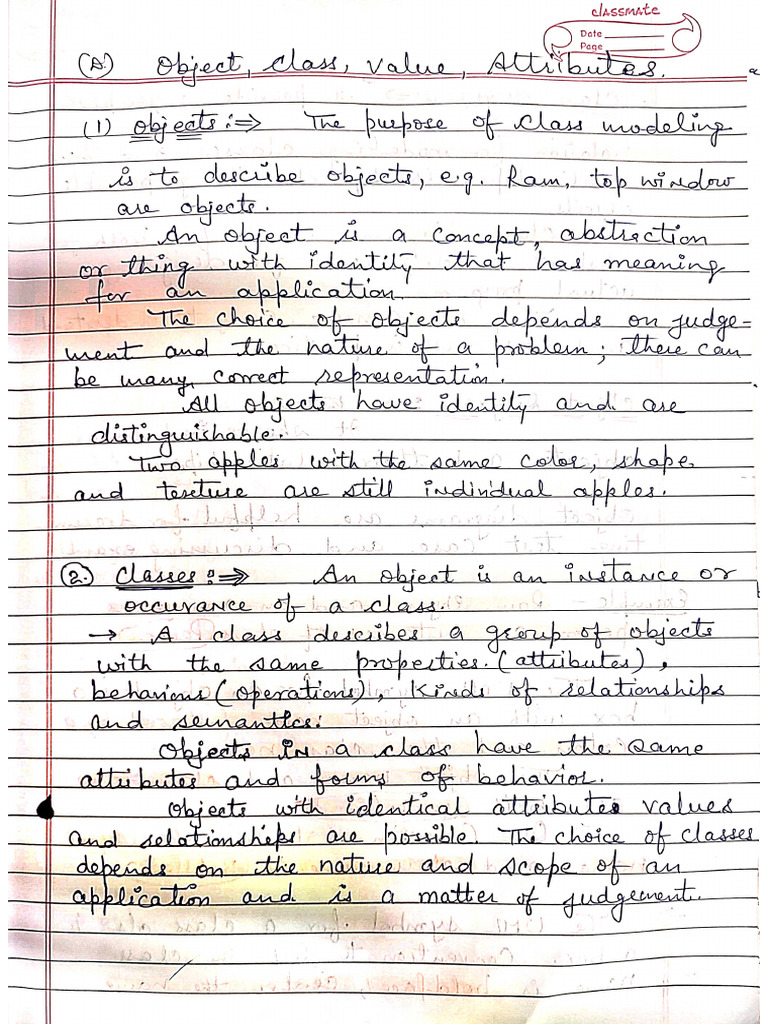 classmate
Date
Page
(A) Object, Class, Value, Attributes.
(1) Objects :⇒ The purpose of class modeling
is to describe objects, e.g. Ram, top window
are objects.
An object is a concept, abstraction
or thing with identity that has meaning
for an application.
The choice of objects depends on judge-
ment and the nature of a problem; there can
be many correct representation.
All objects have identity and are
distinguishable.
Two apples with the same color, shape
and texture are still individual apples.
(2.) Classes :⇒ An object is an instance or
occurance of a class.
→ A class describes a group of objects
with the same properties (attributes),
behaviors (operations), kinds of relationships
and semantics.
Objects in a class have the same
attributes and forms of behavior.
Objects with identical attributes values
and relationships are possible. The choice of classes
depends on the nature and scope of an
application and is a matter of judgement.